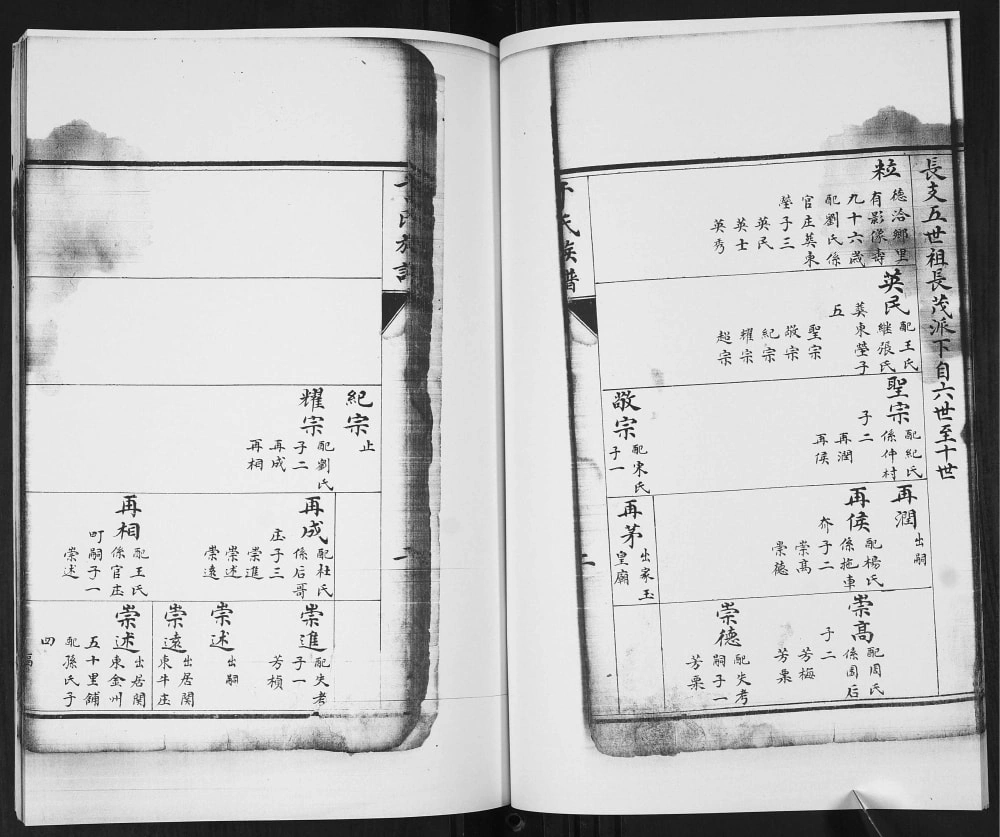 長支五世祖長茂派下自六世至十世
粒
德洽鄉里
有影像壽
九十六歲
配劉氏係
官庄英東
塋子三
英民
英士
英秀
英民
配王氏
繼張氏
英東塋子
五
聖宗
敬宗
紀宗
耀宗
超宗
聖宗
配紀氏
係仲村
子二
再潤
再侯
敬宗
配宋氏
子一
再潤
出嗣
再侯
配楊氏
係拖車
夼子二
崇高
崇德
再茅
出家玉
皇廟
崇高
配周氏
係圈后
子二
芳梅
芳栗
崇德
配失考
嗣子一
芳栗
于氏族譜
二
氏族譜
一
紀宗
止
耀宗
配劉氏
子二
再成
再相
再成
配杜氏
係后哥
庄子三
崇進
崇述
崇遠
再相
配王氏
係官庄
町嗣子一
崇述
崇進
配失考
子一
芳楨
崇述
出嗣
崇遠
出居関
東牛庄
崇述
出居関
東金州
五十里鋪
配孫氏子
四